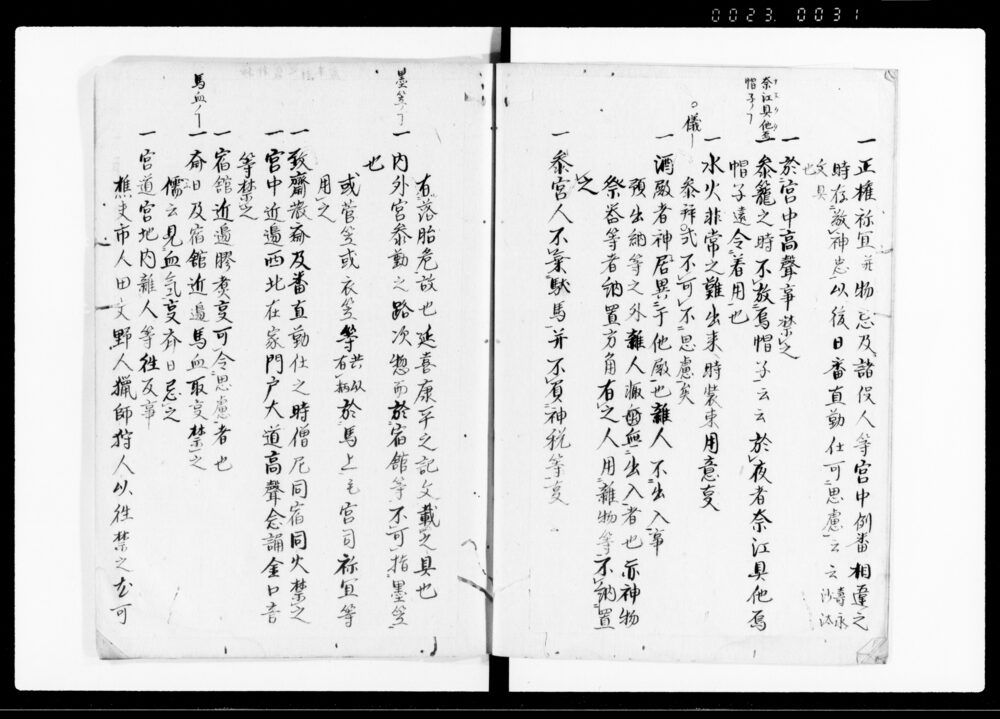 0023. 0031
一正権祢宜并物忌及諸役人等宮中例番相違之
時存敬神忠以後日番直勤仕可思慮云云
文具也
一於宮中高聲事禁之
奈江具他
帽子ノ丁
一参籠之時不放烏帽子云云於夜者奈江具他烏
帽子遠令着用也
一水火非常之難出来時装束用意叓
○儀
参拜式不可不思慮矣
一酒殿者神居異于他殿也雜人不出入事
預出納等之外雜人輙不出入者也亦神物
祭器等者納置方角有之人用雜物等不納置
之
一参宮人不乗駄馬并不負神税等叓
有落胎危故也延喜康平之記文載之具也
墨笠ノ丁
一内外宮参勤之路次惣而於宿館等不可指墨笠
也
或菅笠或衣笠等於馬上毛宮司祢宜等
用之
一致齋散斎及番直勤仕之時僧尼同宿同火禁之
一宮中近邉西北在家門戸大道高聲念誦金口音
等禁之
一宿館近邉膠煑叓可令思慮者也
馬血ノ丁
一斎日及宿館近邉馬血取叓禁之
儒云見血気叓斎日忌之
一宮道宮地内雜人等徃反事
樵夫市人田文野人猟師狩人以徃禁之尤可